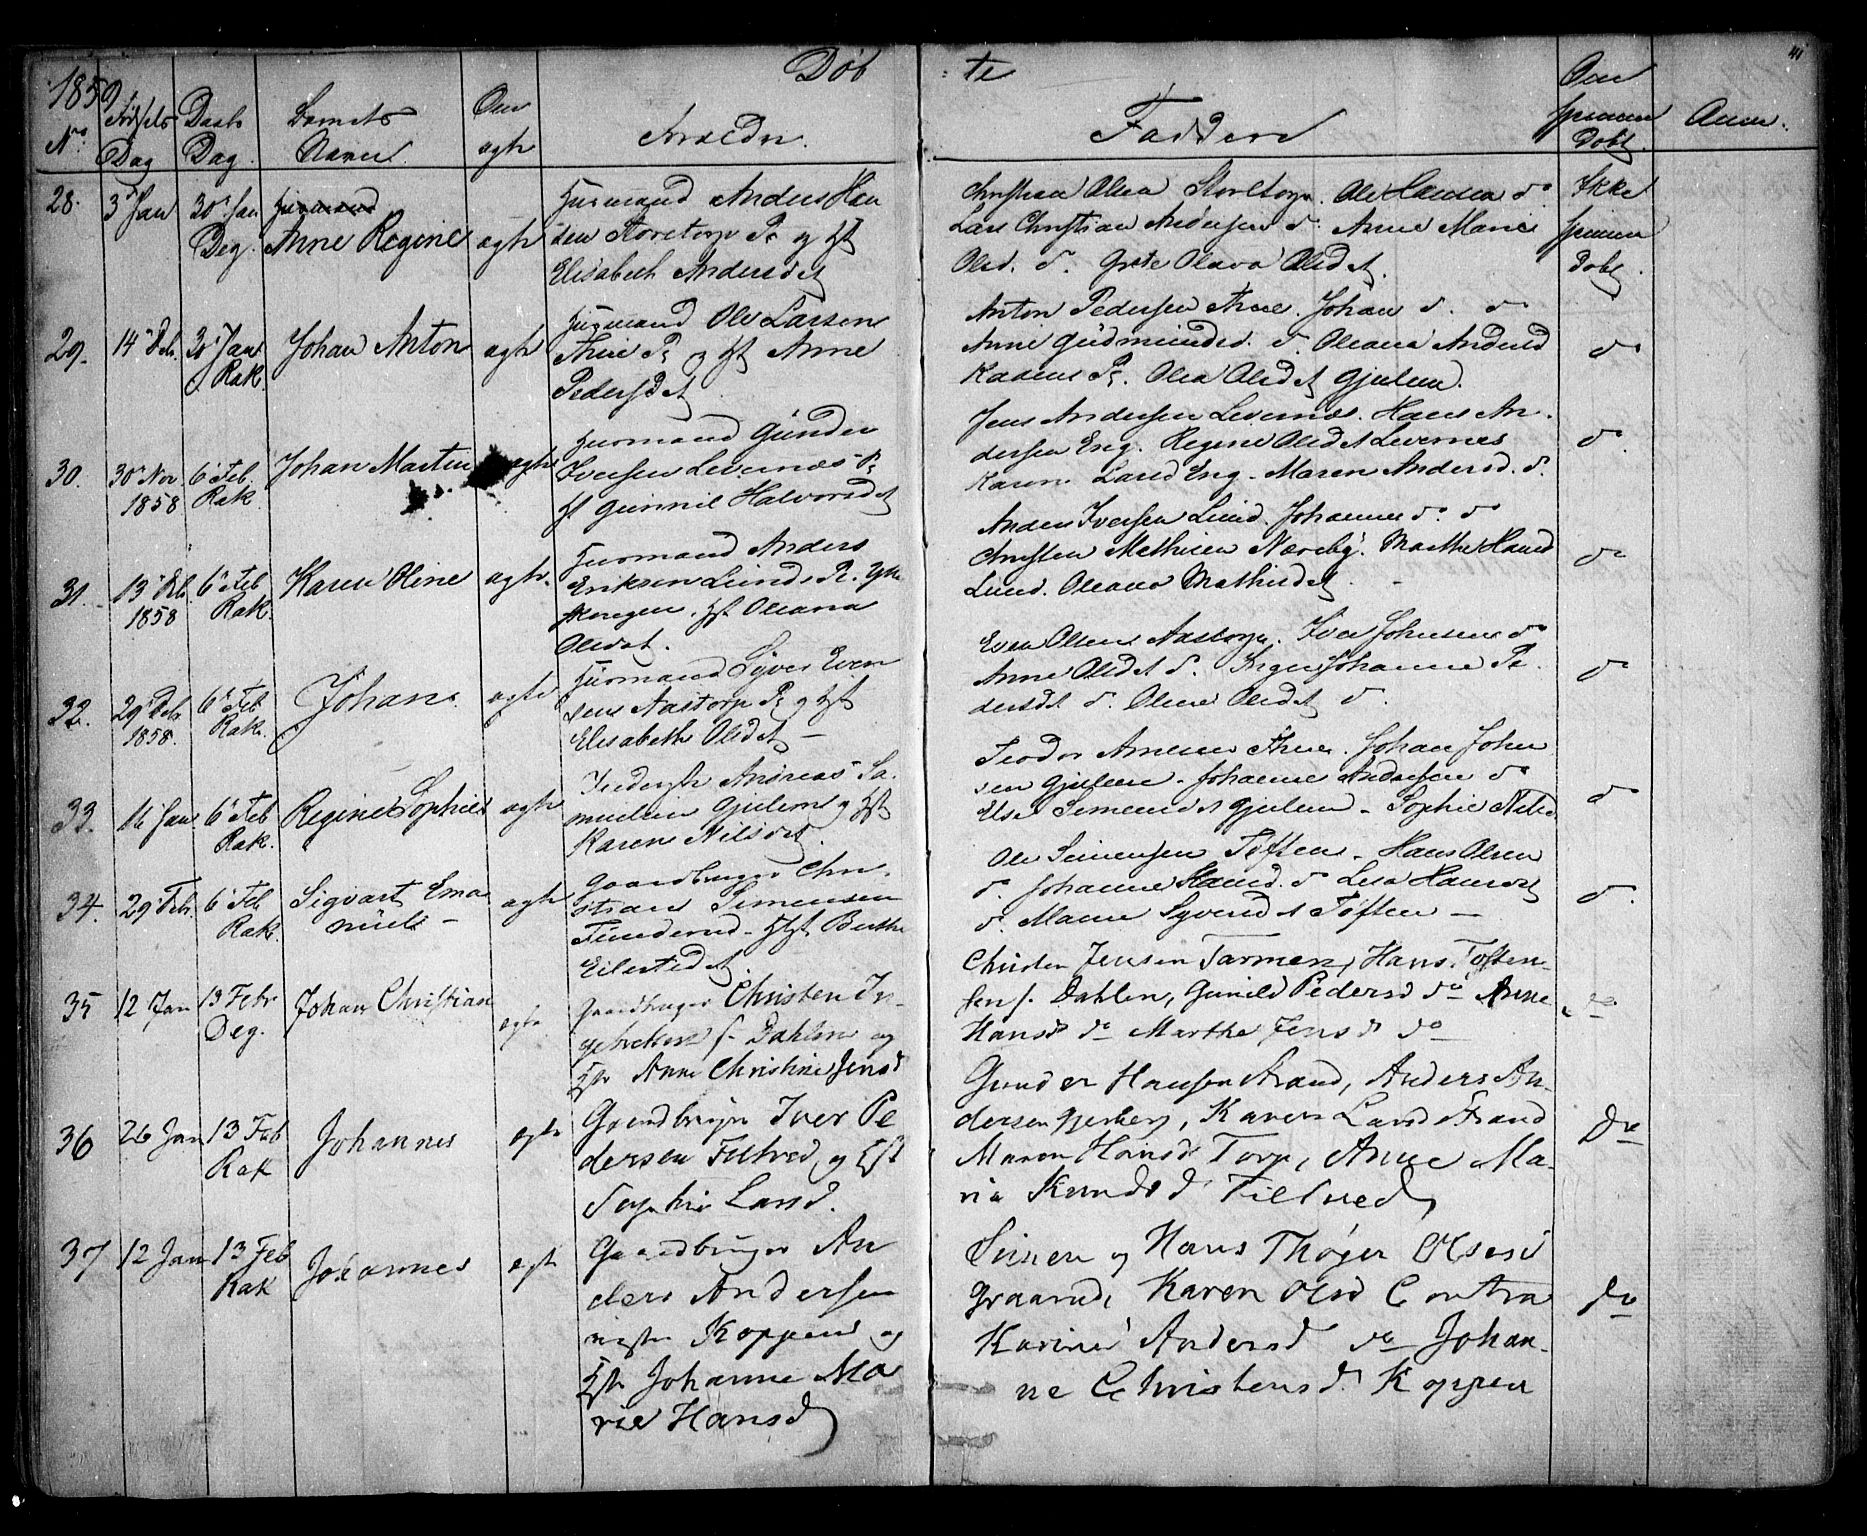 Døb te
41
1859
No. Fødsels Dag Daabs Dag Barnets Navn Om ægte Forældre Faddere Om hjemmedøbt Anm.
28. 3 Jan 30 Jan Deg. Anne Regine ægte
Huusmand Anders Han
sen Storetorp Pr og Hst
Elisabeth Andersdat
Christian Olsen Storetorp. Ole Hansen do.
Lars Christian Andersen do. Anne Marie
Olsd. do. Grete Olava Olsdat.
Ikke
hjemme
døbt.
29. 14 Dcb. 30 Jan Rak. Johan Anton ægte
Huusmand Ole Larsen
Pr og Hst Anne
Pedersdat
Anton Pedersen Johan do. do
Anne Gudmundsd. do. Oleana Andersd
Pr. Olea Olsdat Gjulem.
do
30. 30 Nov 1858 6 Feb. Rak. Johan Martin ægte
Huusmand Gunder
Iversen Levernæs Pr
Hst Gunnil Halvorsdat
Jens Andersen Levernæs. Hans An
dersen Eng. Regine Olsdat Levernæs
Karen Larsd Eng. Maren Andersd. do.
do.
31. 13 Dcb. 1858 6 Feb Rak. Karen Oline ægte.
Huusmand Anders
Eriksen Lund Pr.
Hst Oleana
Olsdat.
Anders Iversen Lund. Johannes do. do
Christen Mathisen Næreby. Marthe Hansd
Lund. Oleava Mathisdat.
do
32. 29 Dcb 1858. 6 Feb Rak. Johan ægte
Huusmand Syver Even
sen Aastorp Pr og Hst
Elisabeth Olsdat
Even Olsen Aastorp. Iver Johnsen do
Anne Olsdat do. Inger Johanne Pe
dersdt do. Oline Olsdat do.
do
33. 16 Jan 6 Feb Rak. Regine Sophie ægte
Inderste Andreas Sa
muelsen Gjulem og Hst
Karen Nilsdat.
Teodor Arnesen Johan John
sen Gjulem. Johanne Andersen do
Else Simensdat Gjulem Sophie Nilsd.
do
34. 29 6 Feb Rak. Sigvart Ema
nuel ægte
Gaardbruger Chri
stian Simensen
Funderud Hst Berthe
Eilertsdat
Ole Simensen Toften. Hans Olsen
do. Johanne Hansd. do Lisa Hansdat
do. Maren Syversdat Toften
do.
35 12 Jan 13 Febr Deg. Johan Christian ægte
Gaardbruger Christen In-
gebretsen f. Dahlen og
Hst Anne Christine Jensd
Christen Jensen Tarmen, Hans Toften-
sen f. Dahlen, Gunild Pedersd do Anne
Hansd do Marthe Jensd do
do
36 26 Jan 13 Feb Rak Johannes ægte
Gaardbruger Iver Pe
dersen Fittved og Hst
Sophie Larsd.
Gunder Hansen Strand, Anders An-
dersen Karen Larsd Strand
Maren Hansd Torp, Anne Ma-
ria Knudsd
Do
37 12 Jan 13 Feb Rak Johannes ægte
Gaardbruger An
ders Andersen
Koppen og
Hst Johanne Ma
rie Hansd
Simen og Hans Thøger Olsens
Karen Olsd
Karine Andersd do Johan-
ne Christensd. Koppen
do